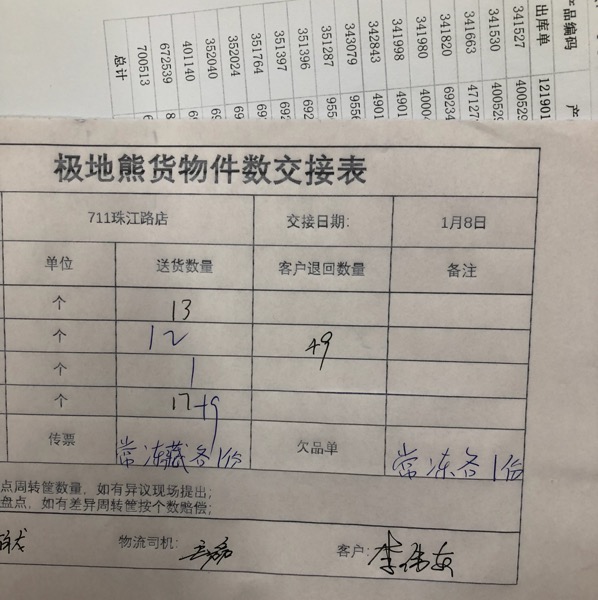 产品编码
出库单 121901
341527 400529
341530 400529
341663 47127
341820 69234
341980 4000
341998 4901
342843 4901
343079 9556
351287 955
351396 692
351397 692
351764 692
352024 69
352040 69
401140
672539
700513
总计
极地熊货物件数交接表
711珠江路店 交接日期: 1月8日
单位 送货数量 客户退回数量 备注
个 13
个 12 49
个 1
个 17+9
传票 常冻藏各1份 欠品单 常冻各1份
点周转筐数量,如有异议现场提出;
盘点,如有差异周转筐按个数赔偿;
物流司机: 客户: